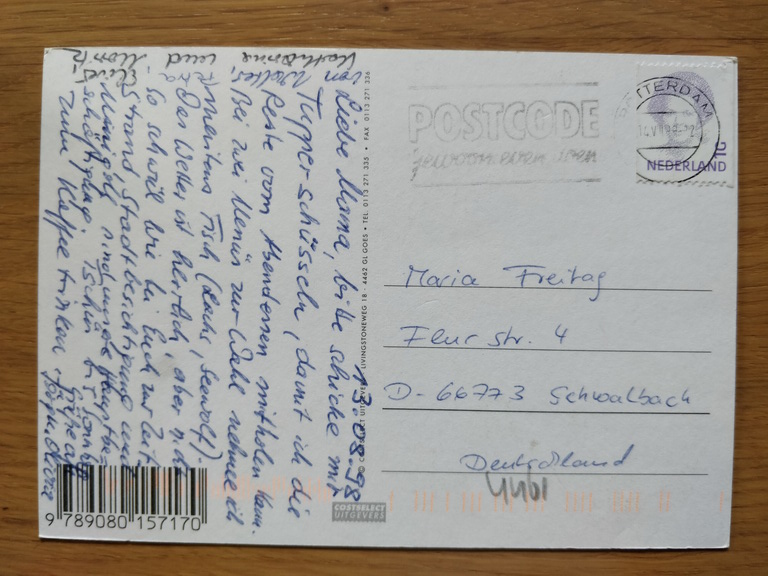 13.08.98
Liebe Mama, bitte schicke mir
Tupper-schüsseln, damit ich die
Reste vom Abendessen mitholen kann.
Bei zwei Menüs zur Wahl nehme ich
meistens Fisch (Lachs, Seewolf).
Das Wetter ist herrlich, aber nicht
so schwül wie bei Euch zur Zeit.
Strand, Stadtbesichtigung und
sind unsere
Tschüs bis Sonntag
zum Kaffee trinken.
von
Katharina und
Moritz
© COSTSELECT UITGEVERS • LIVINGSTONEWEG 18 - 4462 GL GOES • TEL. 0113 271 335 • FAX 0113 271 336
POSTCODE
ROTTERDAM
NEDERLAND
1G
Maria Freitag
Flur str. 4
D-66773 Schwalbach
Deutschland
4461
COSTSELECT
UITGEVERS
9 789080 157170